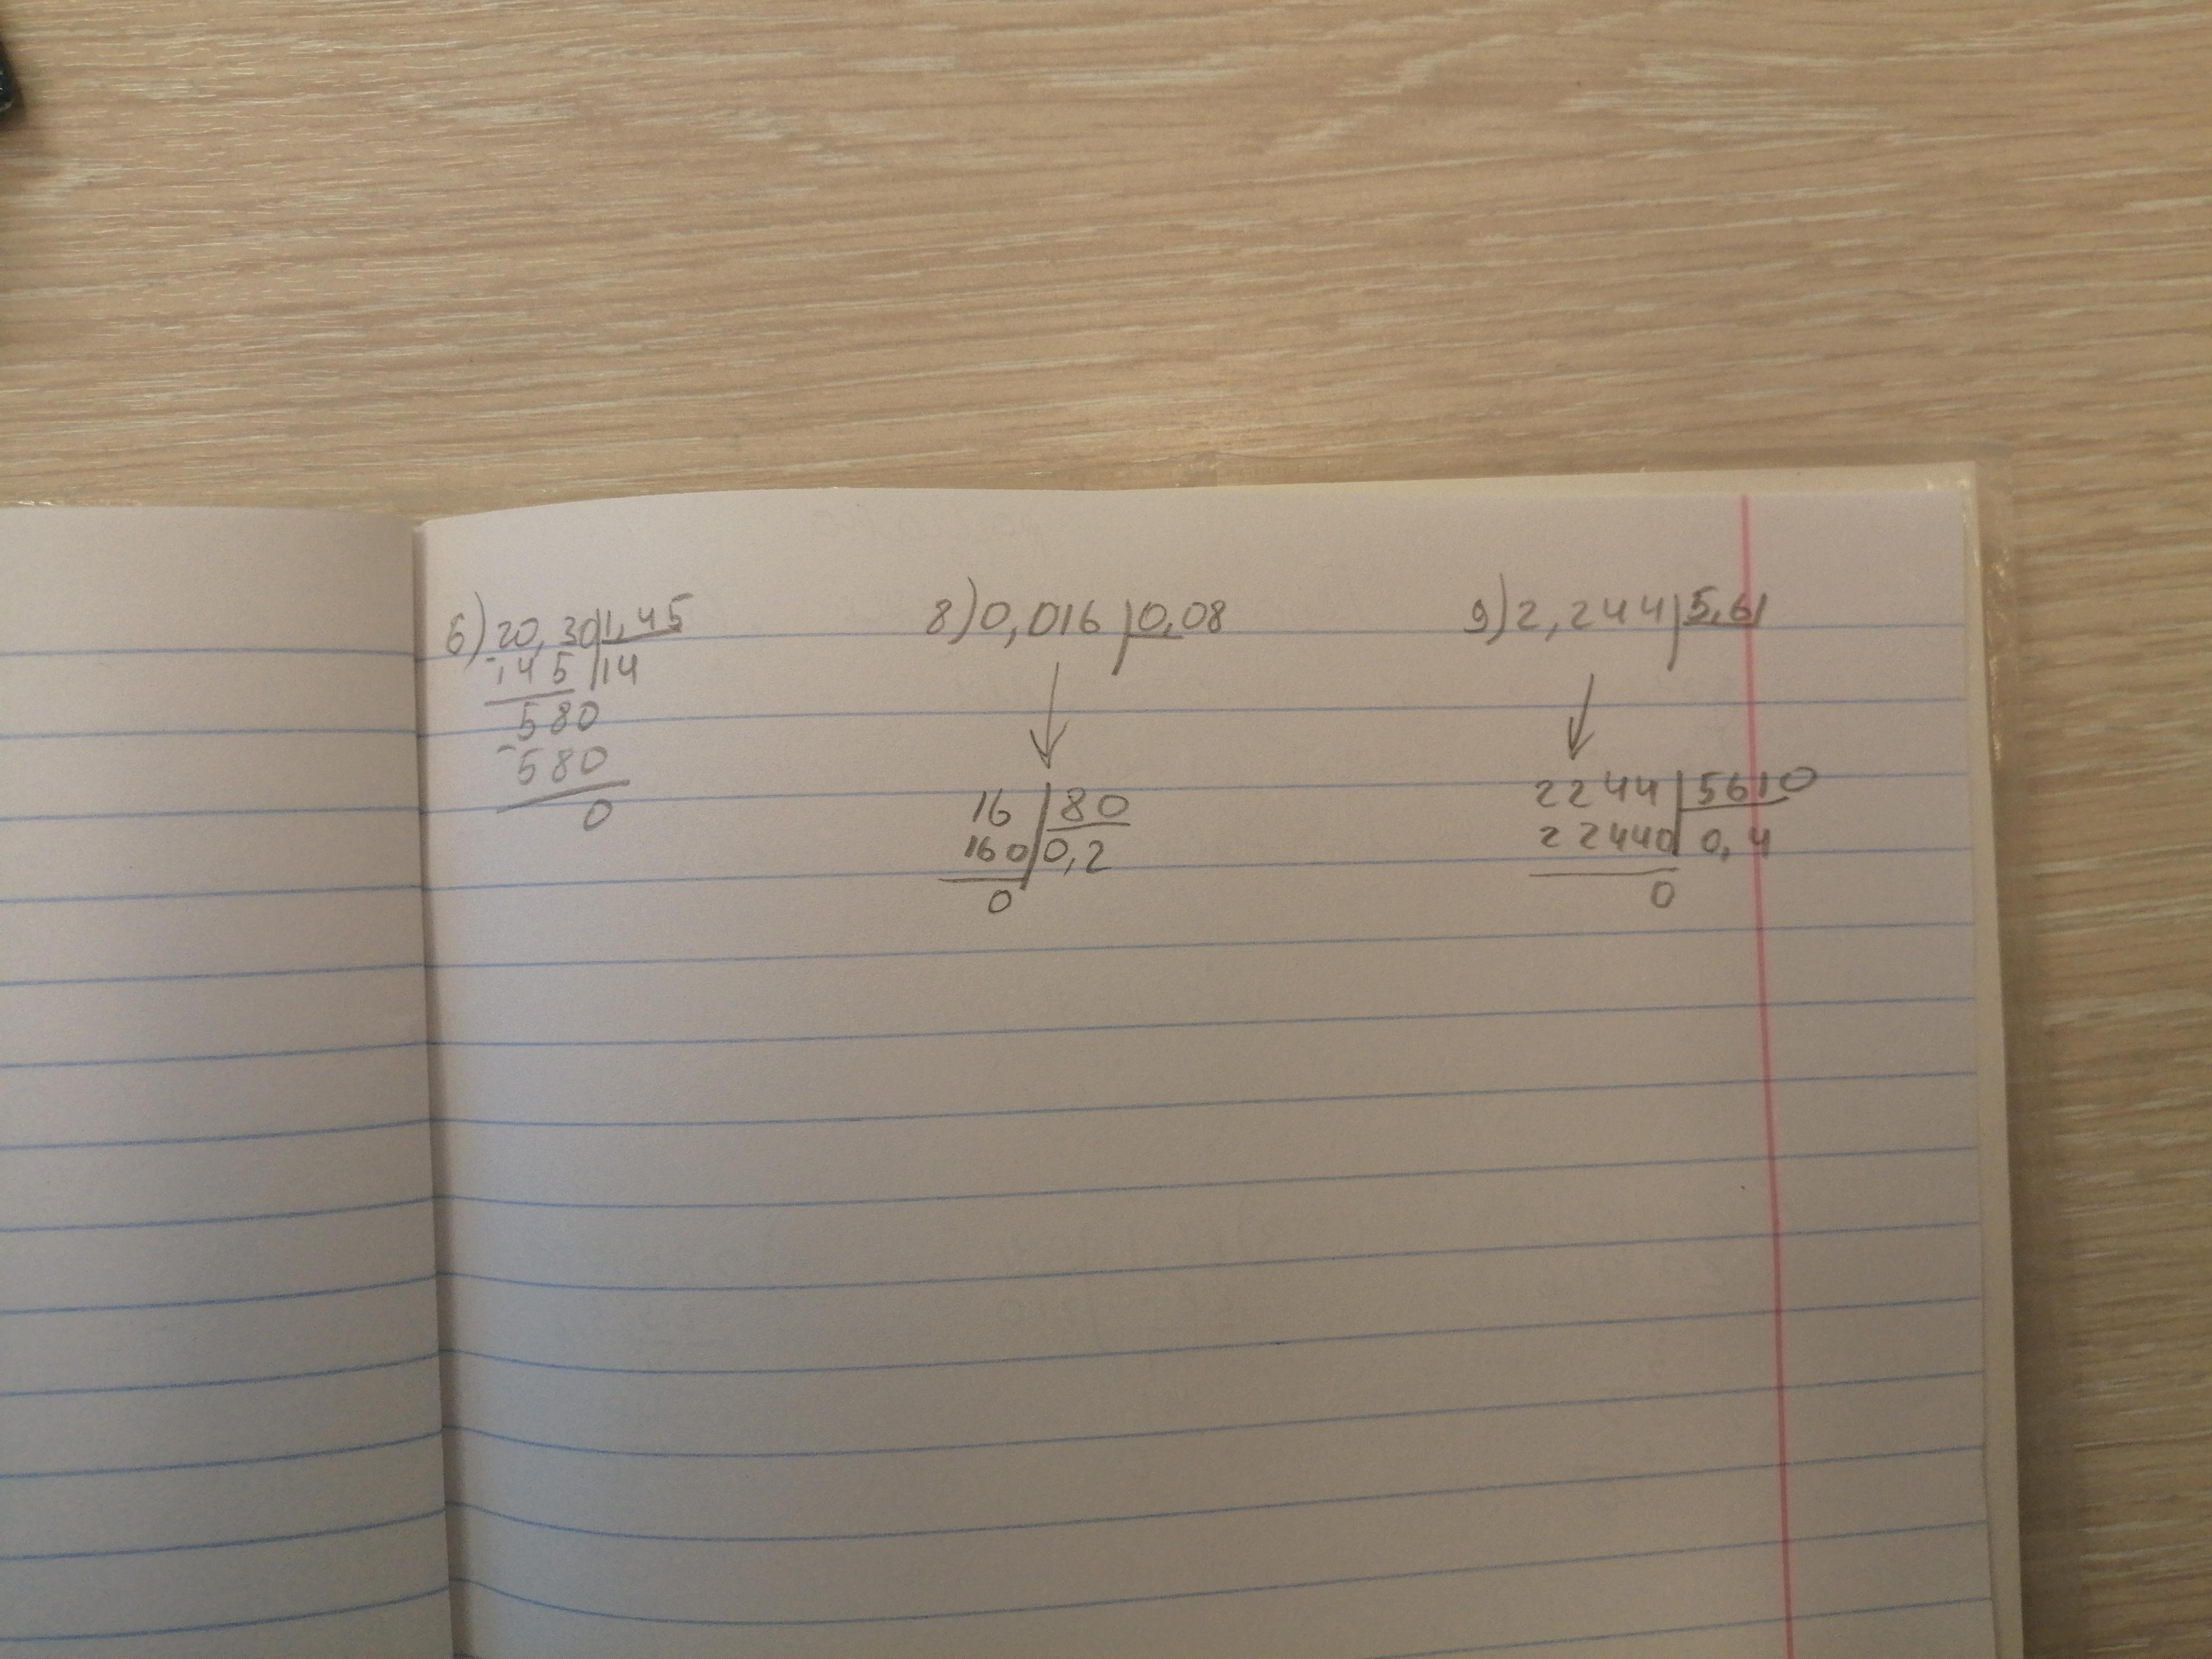 6) 20,30 1,45
-145 14
580
-580
0
8) 0,016 0,08
16 80
160 0,2
0
9) 2,244 5,61
2244 5610
22440 0,4
0